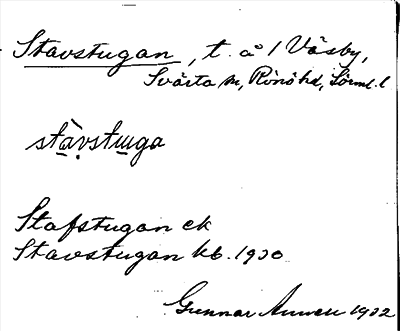 Stavstugan, t. å / Väsby,
Svärta sn, Rönö hd, Sörml. l
stàvstuga
Stafstugan ek
Stavstugan kb. 1930
Gunnar 1932